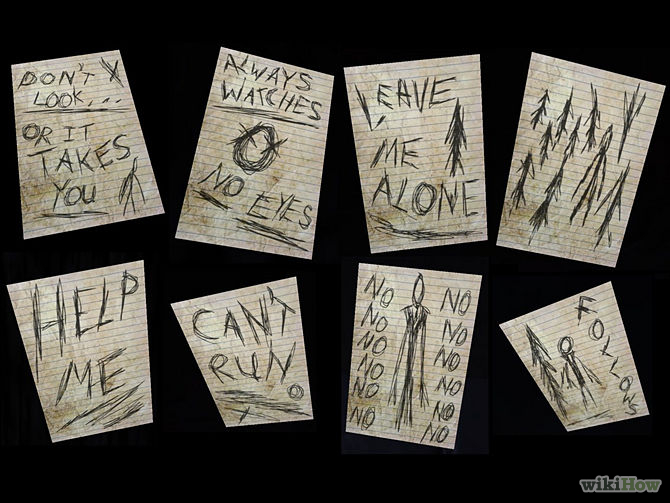 DON'T
LOOK...
OR IT
TAKES
YOU
ALWAYS
WATCHES
NO EYES
LEAVE
ME
ALONE
HELP
ME
CAN'T
RUN.
NO NO
NO NO
NO NO
NO NO
NO NO
NO NO
NO
FOLLOWS
wikiHow